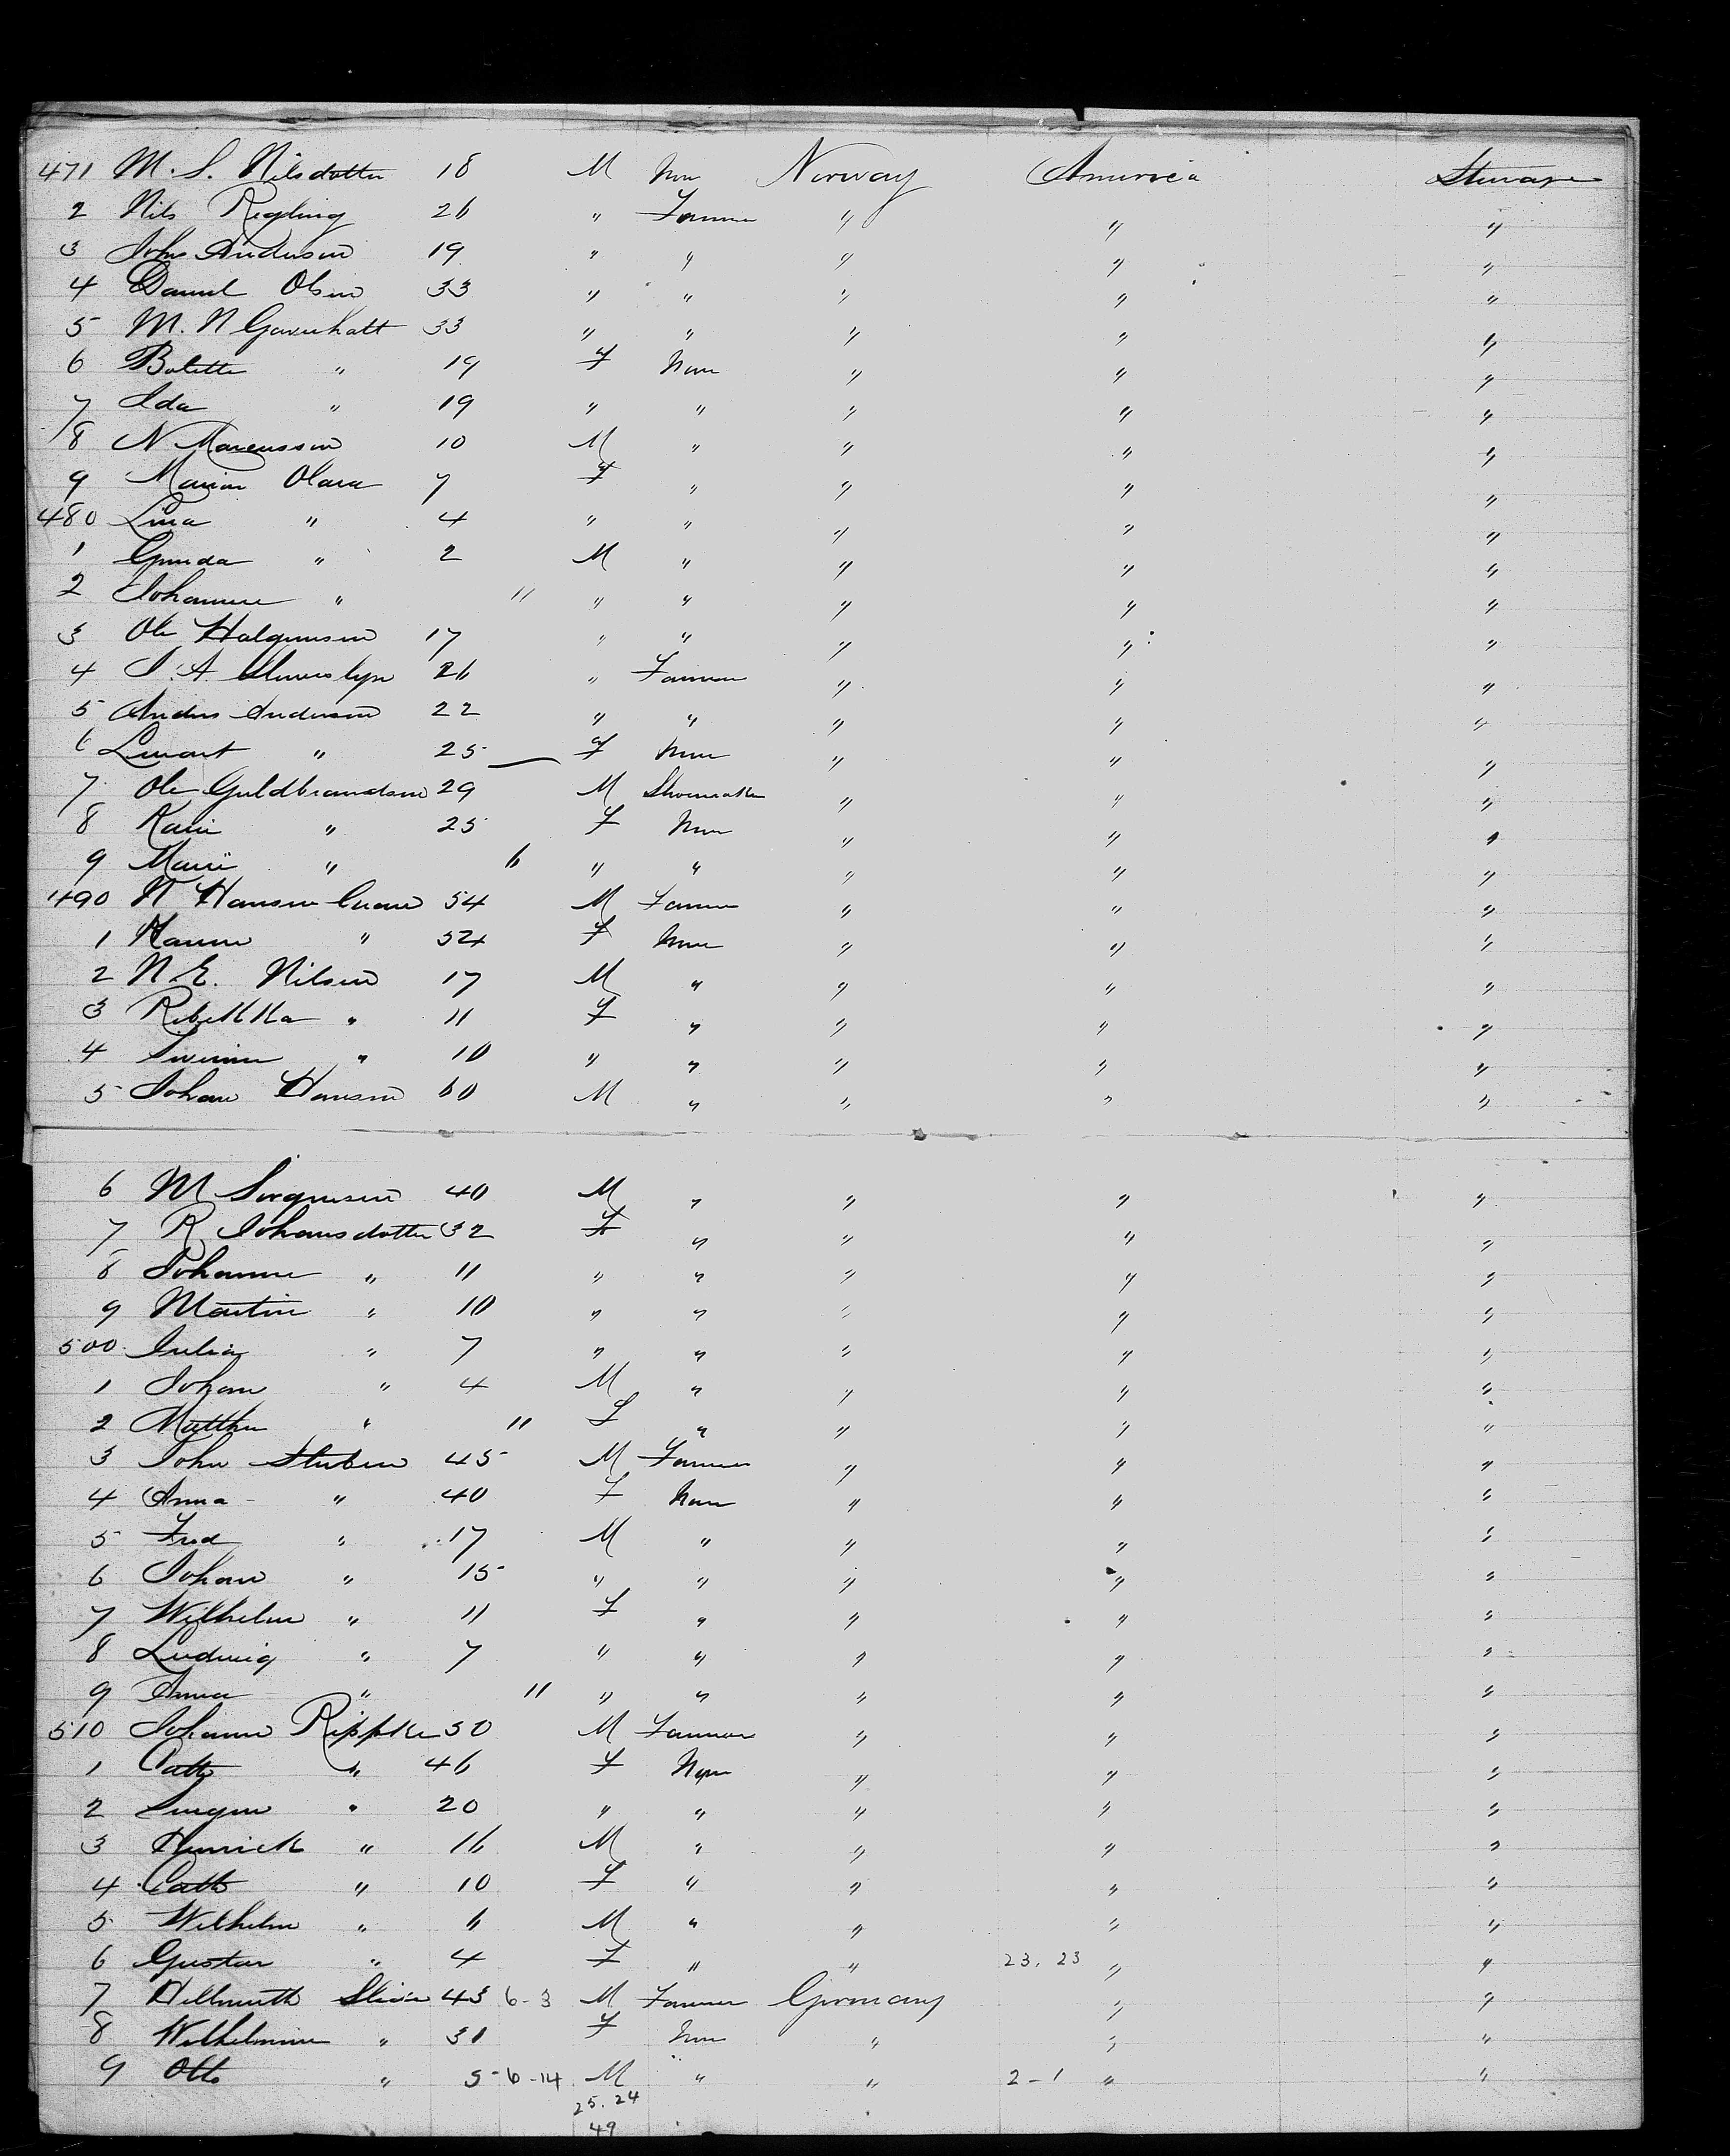 471 M. S. Nilsdotter 18 M Non Norway America Steerage
2 Nils Regling 26 " Farmer " " "
3 John Anderson 19 " " " " "
4 Daniel Olsen 33 " " " " "
5 M. N 33 " " " " "
6 Bolette " 19 F Non " " "
7 Ida " 19 " " " " "
8 N Marcusson 10 M " " " "
9 Marian Olava 7 F " " " "
480 Lina " 4 " " " " "
1 Gunda " 2 M " " " "
2 Johanne " 11 " " " " "
3 Ole Halgumsen 17 " " " " "
4 26 " Farmer " " "
5 Anders Anderson 22 " " " " "
6 " 25 F Non " " "
7 Ole Guldbrandsen 29 M Shoemaker " " "
8 Kari " 25 F Non " " "
9 Marie " 6 " " " " "
490 N Hansen 54 M Farmer " " "
1 " 52 F Non " " "
2 N. E. Nilsen 17 M " " " "
3 Ribekka " 11 F " " " "
4 " 10 " " " " "
5 Johan Hansen 60 M " " " "
6 M 40 M " " " "
7 R Johansdotter 32 F " " " "
8 Johanne " 11 " " " " "
9 Martin " 10 " " " " "
500 Julia " 7 " " " " "
1 Johan " 4 M " " " "
2 Matthu " 11 F " " " "
3 John Stuben 45 M Farmer " " "
4 Anna " 40 F Non " " "
5 Fred " 17 M " " " "
6 Johan " 15 " " " " "
7 Wilhelm " 11 F " " " "
8 Ludwig " 7 " " " " "
9 Anna " 11 " " " " "
510 Johann Rippke 50 M Farmer " " "
1 Cath " 46 F Non " " "
2 " 20 " " " " "
3 Henrick " 16 M " " " "
4 Cath " 10 F " " " "
5 Wilhelm " 6 M " " " "
6 Gustav " 4 F " " 23. 23 " "
7 Hellmuth 43 6-3 M Farmer Germany " "
8 Wilhelmine " 31 F Non " " "
9 Otto " 5 6-14 M " " 2-1 " "
25. 24
49